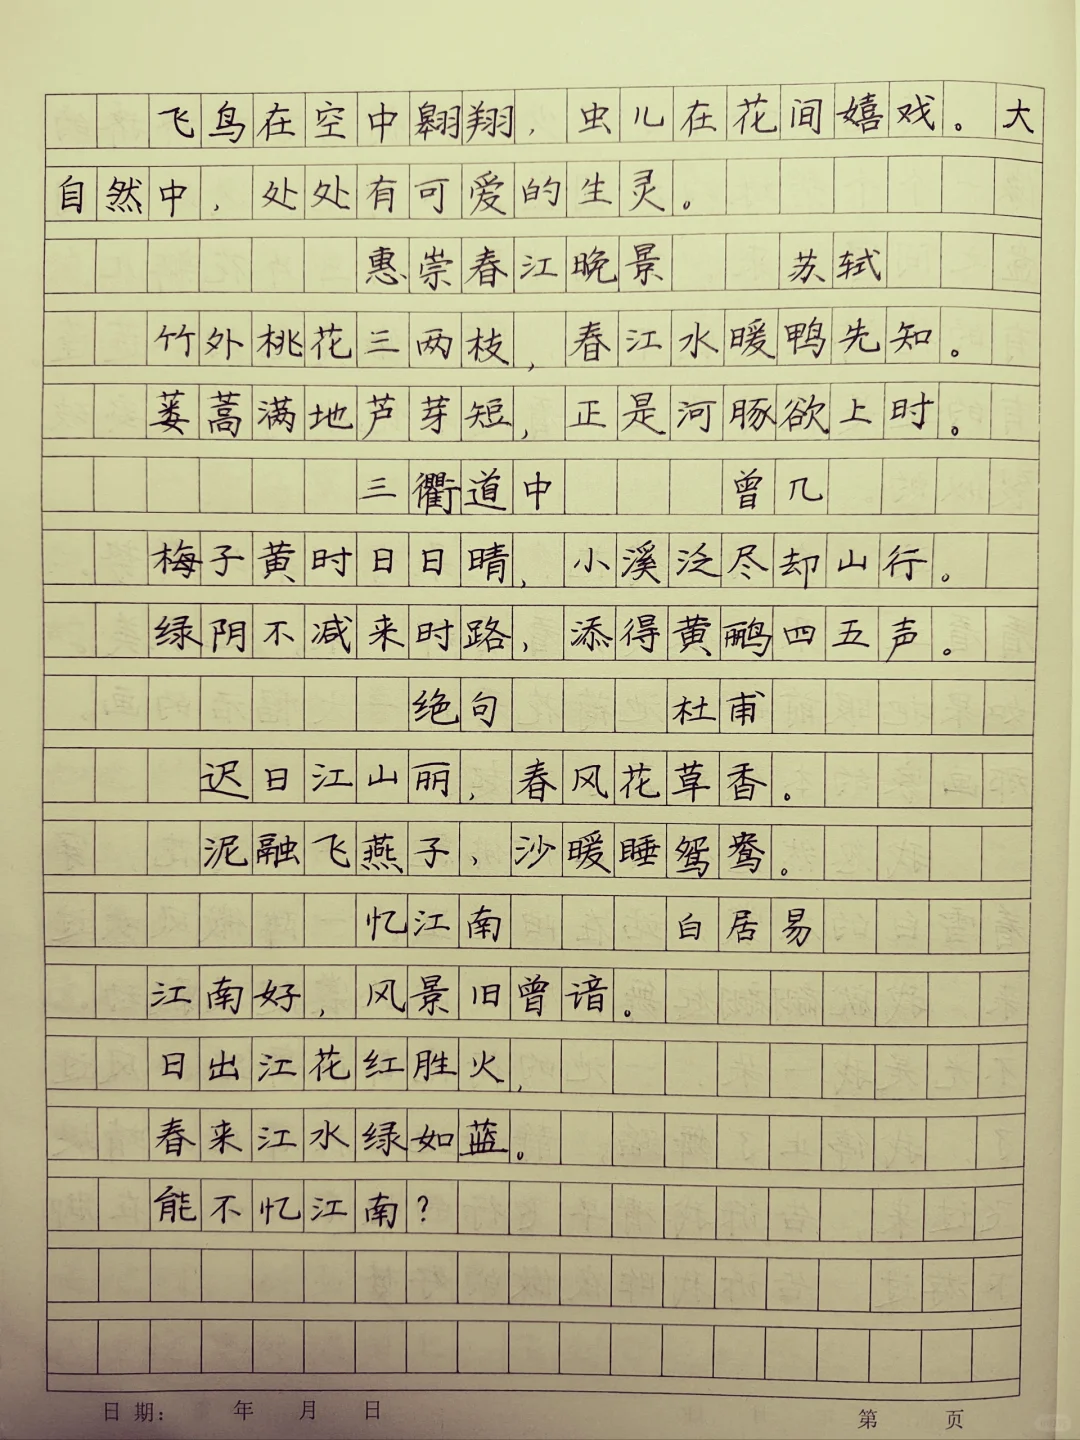 飞鸟在空中翱翔，虫儿在花间嬉戏。大
自然中，处处有可爱的生灵。
惠崇春江晚景 苏轼
竹外桃花三两枝，春江水暖鸭先知。
蒌蒿满地芦芽短，正是河豚欲上时。
三衢道中 曾几
梅子黄时日日晴，小溪泛尽却山行。
绿阴不减来时路，添得黄鹂四五声。
绝句 杜甫
迟日江山丽，春风花草香。
泥融飞燕子，沙暖睡鸳鸯。
忆江南 白居易
江南好，风景旧曾谙。
日出江花红胜火，
春来江水绿如蓝。
能不忆江南？
日期： 年 月 日 第 页